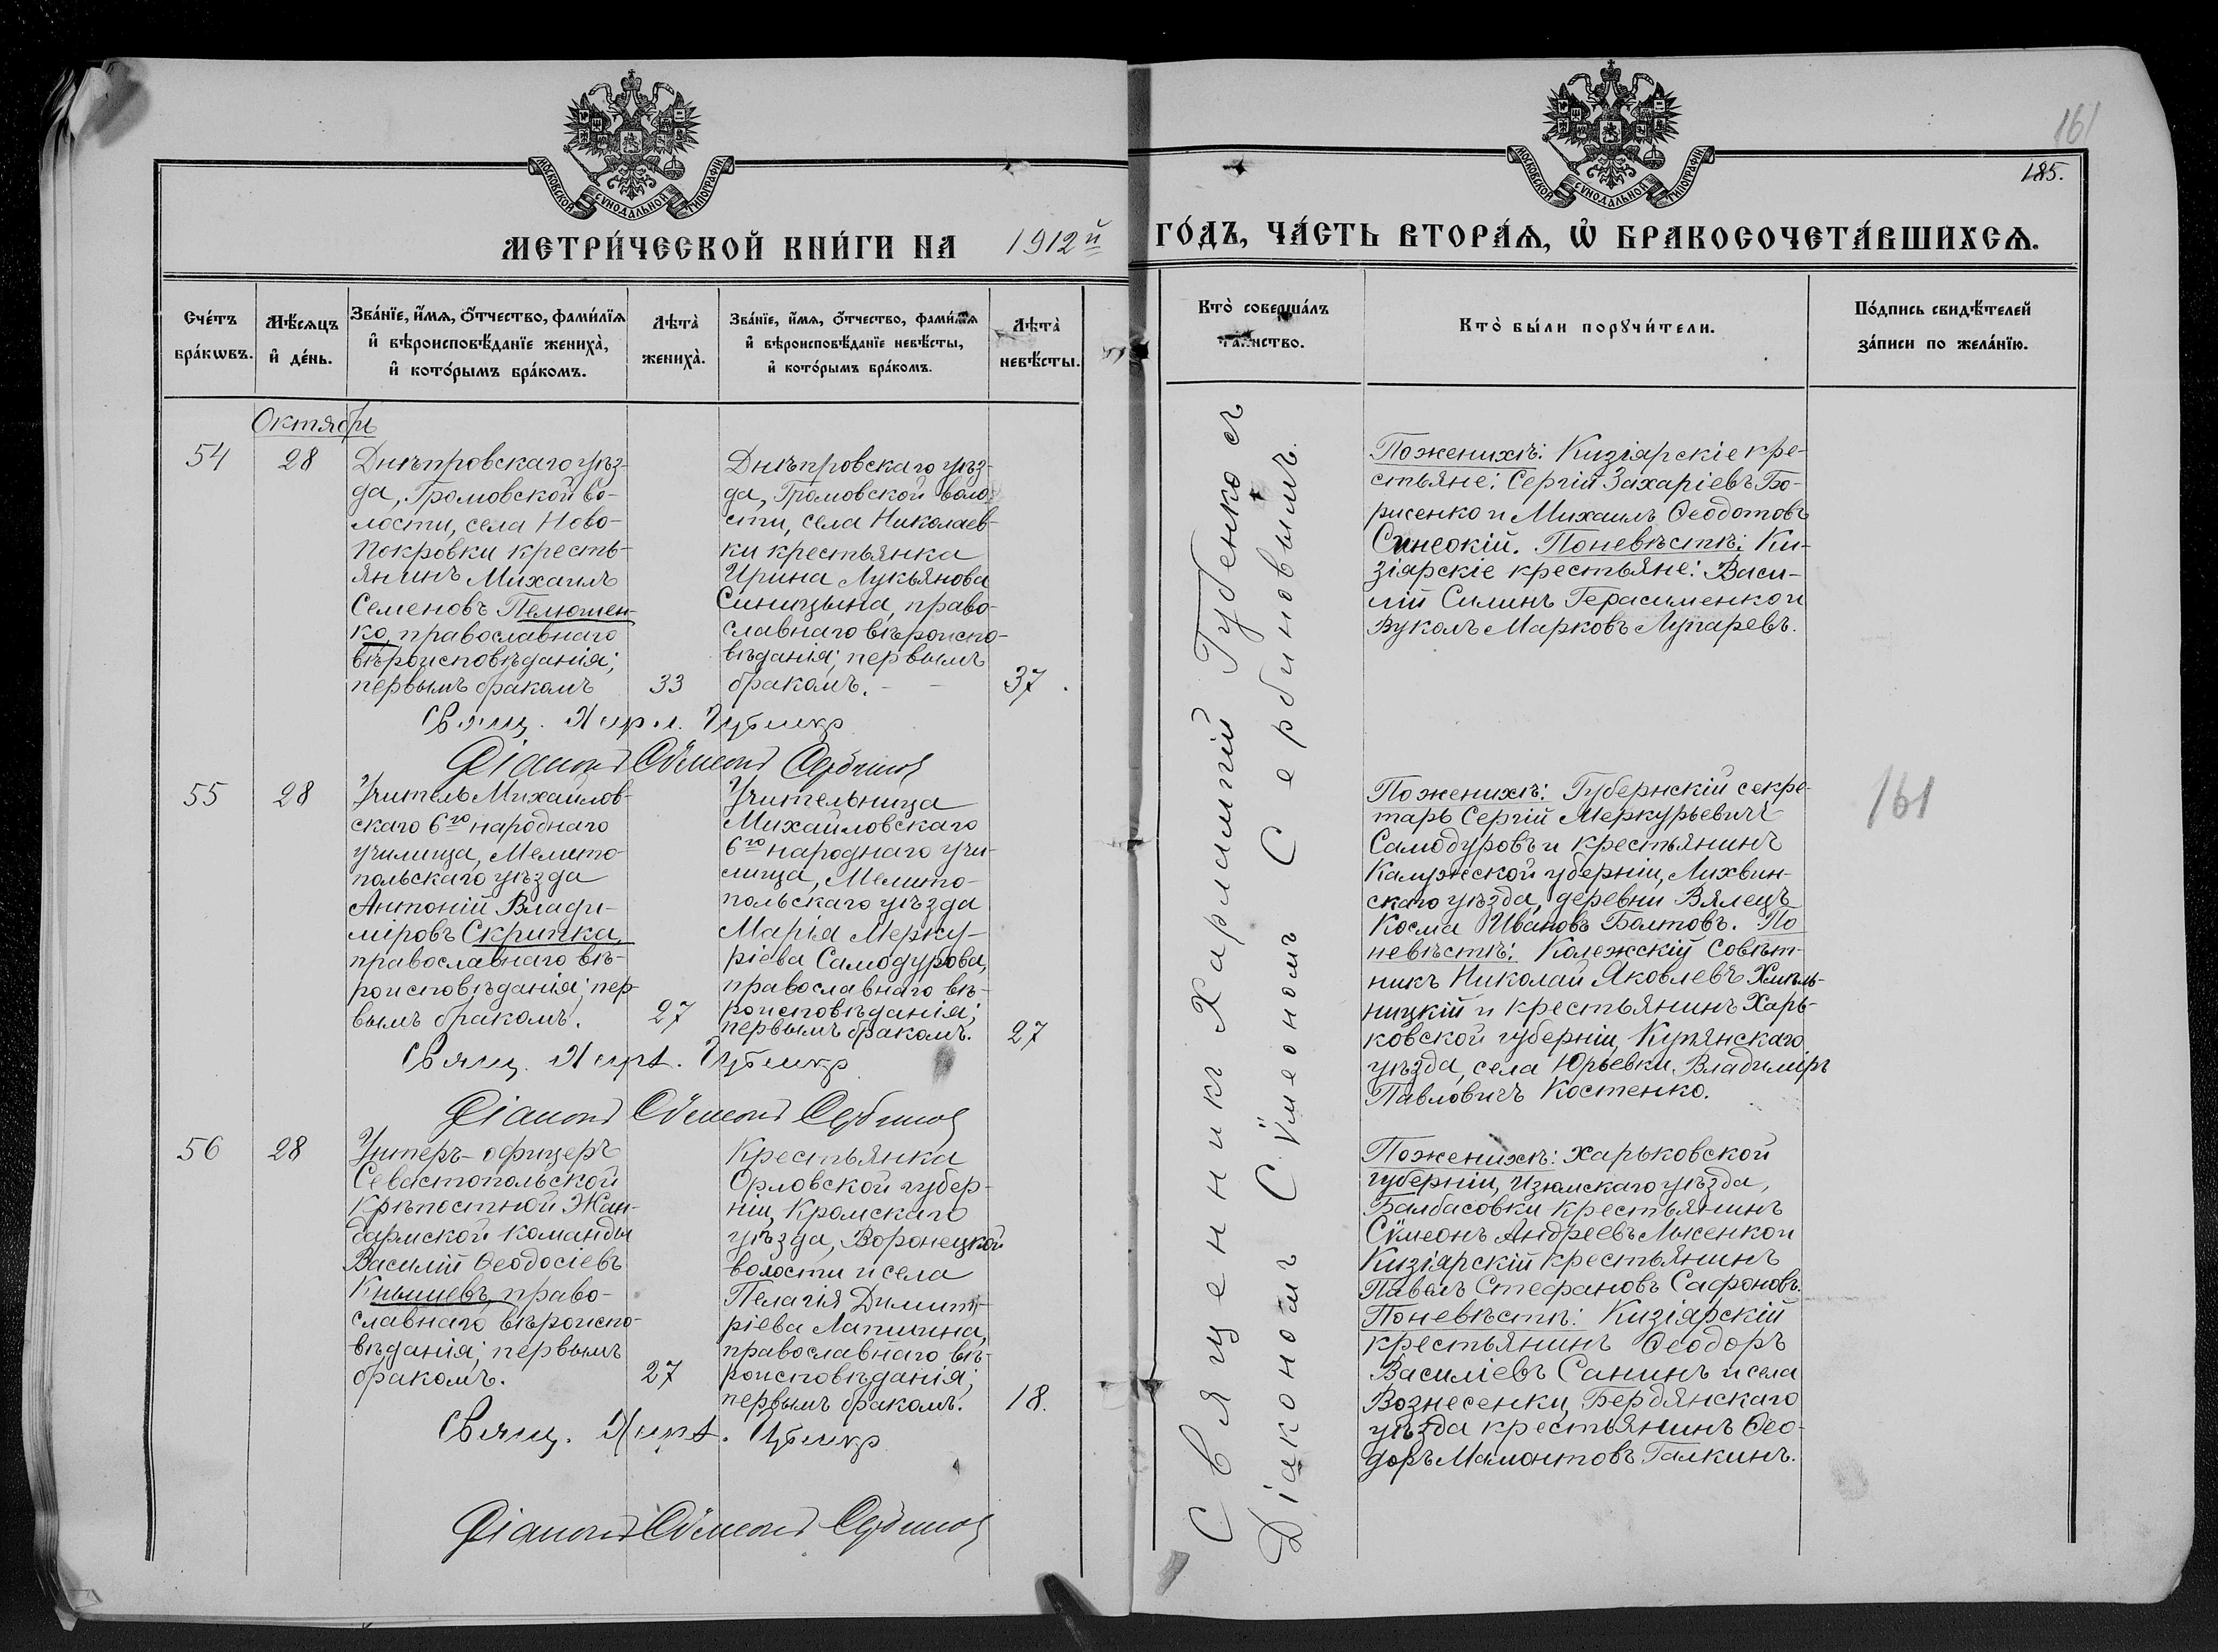 МОСКОВСКОЙ СѴНОДАЛЬНОЙ ТИПОГРАФІИ
МЕТРИ́ЧЕСКОЙ КНИ́ГИ НА 1912й
Сче́тъ бра́кѡвъ.
Мѣ́сяцъ и҆ де́нь.
Зва́нїе, и҆́мѧ, ѻ҆́тчество, фами́лїѧ
и҆ вѣроисповѣ́данїе жениха̀,
и҆ кото́рымъ бра́комъ.
Лѣта̀ жениха̀.
Зва́нїе, и҆́мѧ, ѻ҆́тчество, фами́лїѧ
и҆ вѣроисповѣ́данїе невѣ́сты,
и҆ кото́рымъ бра́комъ.
Лѣта̀ невѣ́сты.
Октябрь
54
28
Днѣпровскаго уѣз-
да, Громовской во-
лости, села Ново-
покровки кресть-
янинъ Михаилъ
Семеновъ Пелюшен-
ко, православнаго
вѣроисповѣданія;
первымъ бракомъ
33
Днѣпровскаго уѣз-
да, Громовской воло-
сти, села Николаев-
ки крестьянка
Ирина Лукьянова
Синицына, право-
славнаго вѣроиспо-
вѣданія; первымъ
бракомъ. – –
37.
Свящ. Харл. Губенко
Діаконъ Сѵмеонъ Сербиновъ
55
28
Учитель Михайлов-
скаго 6го народнаго
училища, Мелито-
польскаго уѣзда
Антоній Влади-
міровъ Скрипка,
православнаго вѣ-
роисповѣданія; пер-
вымъ бракомъ.
27
Учительница
Михайловскаго
6го народнаго учи-
лища, Мелито-
польскаго уѣзда
Марія Мерку-
ріева Самодурова,
православнаго вѣ-
роисповѣданія;
первымъ бракомъ.
27
Свящ. Харл. Губенко
Діаконъ Сѵмеонъ Сербиновъ
56
28
Унтеръ-офицеръ
Севастопольской
Крѣпостной Жан-
дармской команды
Василій Ѳеодосіевъ
Кнышевъ, право-
славнаго вѣроиспо-
вѣданія; первымъ
бракомъ.
27
Крестьянка
Орловской губер-
ніи, Кромскаго
уѣзда, Воронецкой
волости и села
Пелагія Димит-
ріева Лапшина,
православнаго вѣ-
роисповѣданія;
первымъ бракомъ.
18.
Свящ. Харл. Губенко
Діаконъ Сѵмеонъ Сербиновъ
161
185.
МОСКОВСКОЙ СѴНОДАЛЬНОЙ ТИПОГРАФІИ
ГО́ДЪ, ЧА́СТЬ ВТОРА́Ѧ, Ѡ҆ БРАКОСОЧЕТА́ВШИХСѦ.
Кто̀ соверша́лъ
таинство.
Кто̀ бы́ли порꙋчи́тели.
По́дпись свидѣ́телей
за́писи по жела́нїю.
Священникъ Харлампій Губенко съ
Діакономъ Сѵмеономъ Сербиновымъ.
По женихѣ: Кизіярскіе кре-
стьяне: Сергій Захаріевъ Бо-
рисенко и Михаилъ Ѳеодотовъ
Синеокій. По невѣстѣ: Ки-
зіярскіе крестьяне: Васи-
лій Силинъ Герасименко и
Вуколъ Марковъ Лупаревъ.
По женихѣ: Губернскій секре-
тарь Сергій Меркурьевичъ
Самодуровъ и крестьянинъ
Калужской губерніи, Лихвин-
скаго уѣзда, деревни Вялецъ
Косма Ивановъ Болтовъ. По
невѣстѣ: Колежскій Совѣт-
никъ Николай Яковлевъ Хмѣль-
ницкій и крестьянинъ Харь-
ковской губерніи, Купянскаго
уѣзда, села Юрьевки Владиміръ
Павловичъ Костенко.
161
По женихѣ: Харьковской
губерніи, Изюмскаго уѣзда,
Балбасовки крестьянинъ
Сѵмеонъ Андреевъ Лысенко и
Кизіярскій крестьянинъ
Павелъ Стефановъ Сафоновъ.
По невѣстѣ: Кизіярскій
крестьянинъ Ѳеодоръ
Василіевъ Санинъ и села
Вознесенки, Бердянскаго
уѣзда крестьянинъ Ѳео-
доръ Мамонтовъ Галкинъ.